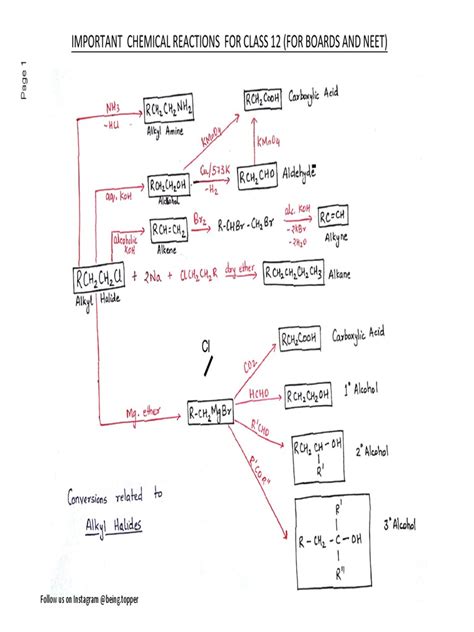 Page 1
IMPORTANT CHEMICAL REACTIONS FOR CLASS 12 (FOR BOARDS AND NEET)
NH3
-HCl
RCH2CH2NH2
Alkyl Amine
RCH2COOH Carboxylic Acid
KMnO4
KMnO4
aq. KOH
RCH2CH2OH
Alcohol
Cu/573K
-H2
RCH2CHO Aldehyde
alcoholic KOH
RCH=CH2
Alkene
Br2
R-CHBr-CH2Br
alc. KOH
-2KBr
-2H2O
RC≡CH
Alkyne
RCH2CH2Cl + 2Na + ClCH2CH2R dry ether RCH2CH2CH2CH3 Alkane
Alkyl Halide
Cl
Mg. ether
R-CH2MgBr
CO2
RCH2COOH Carboxylic Acid
HCHO
RCH2CH2OH 1° Alcohol
R'CHO
RCH2CH-OH
R'
2° Alcohol
R'COR"
R'
R-CH2-C-OH
R"
3° Alcohol
Conversions related to
Alkyl Halides
Follow us on Instagram @being.topper